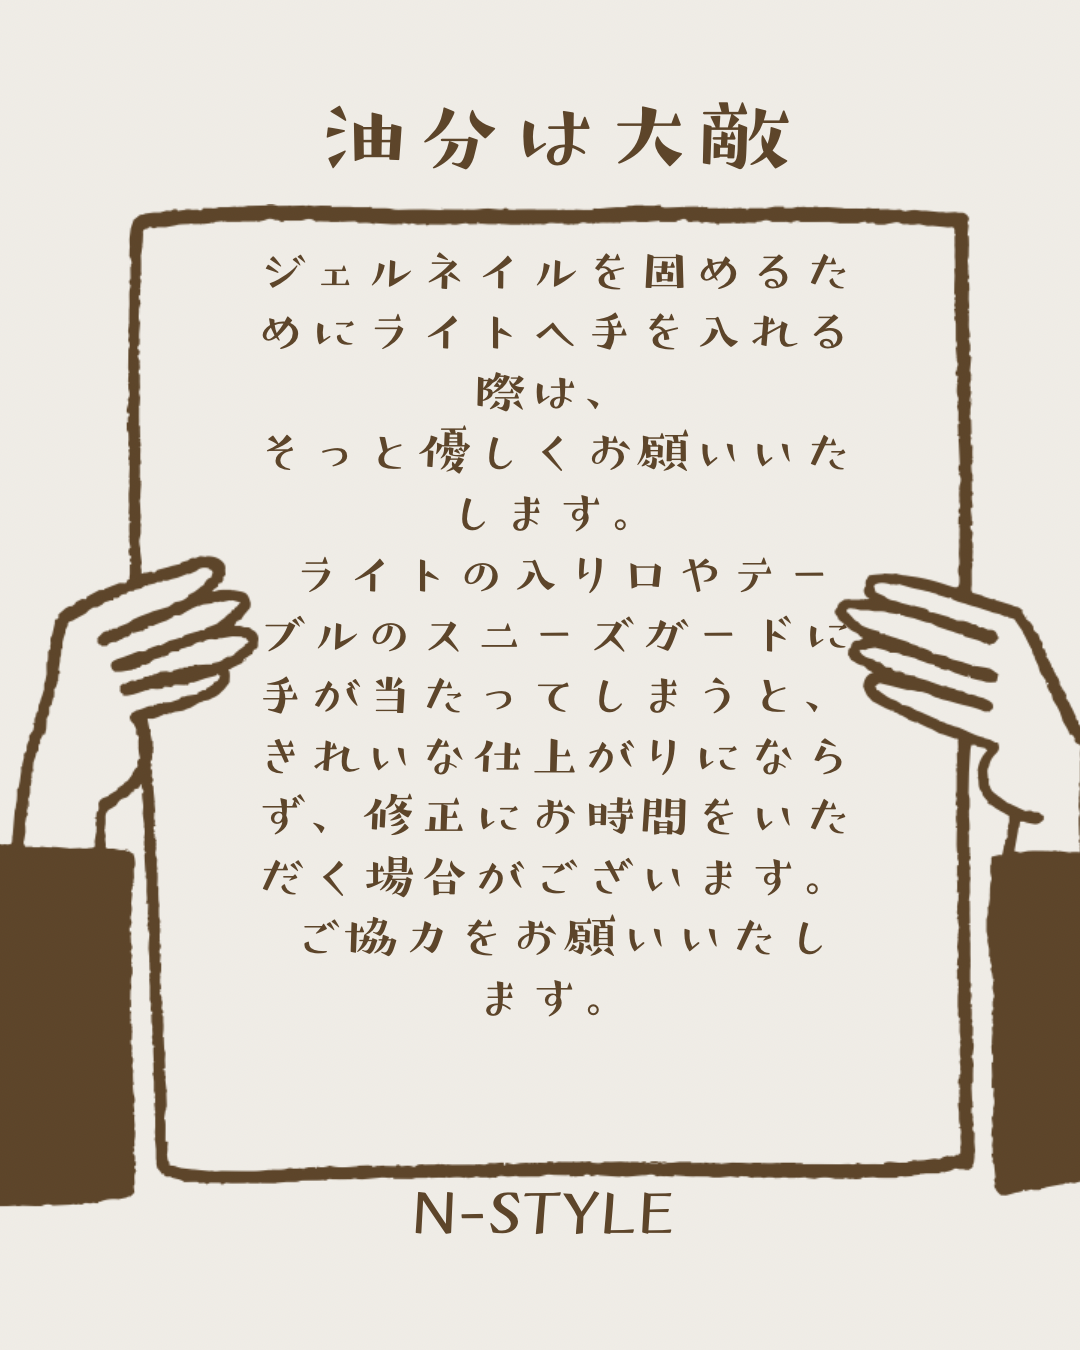 油分は大敵
ジェルネイルを固めるた
めにライトへ手を入れる
際は、
そっと優しくお願いいた
します。
ライトの入り口やテー
ブルのスニーズガードに
手が当たってしまうと、
きれいな仕上がりになら
ず、修正にお時間をいた
だく場合がございます。
ご協力をお願いいたし
ます。
N-STYLE